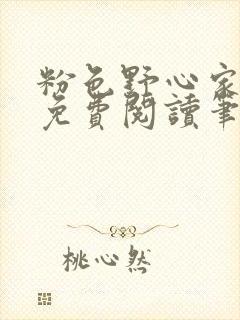 粉色野心家
免費閱讀筆
桃心然